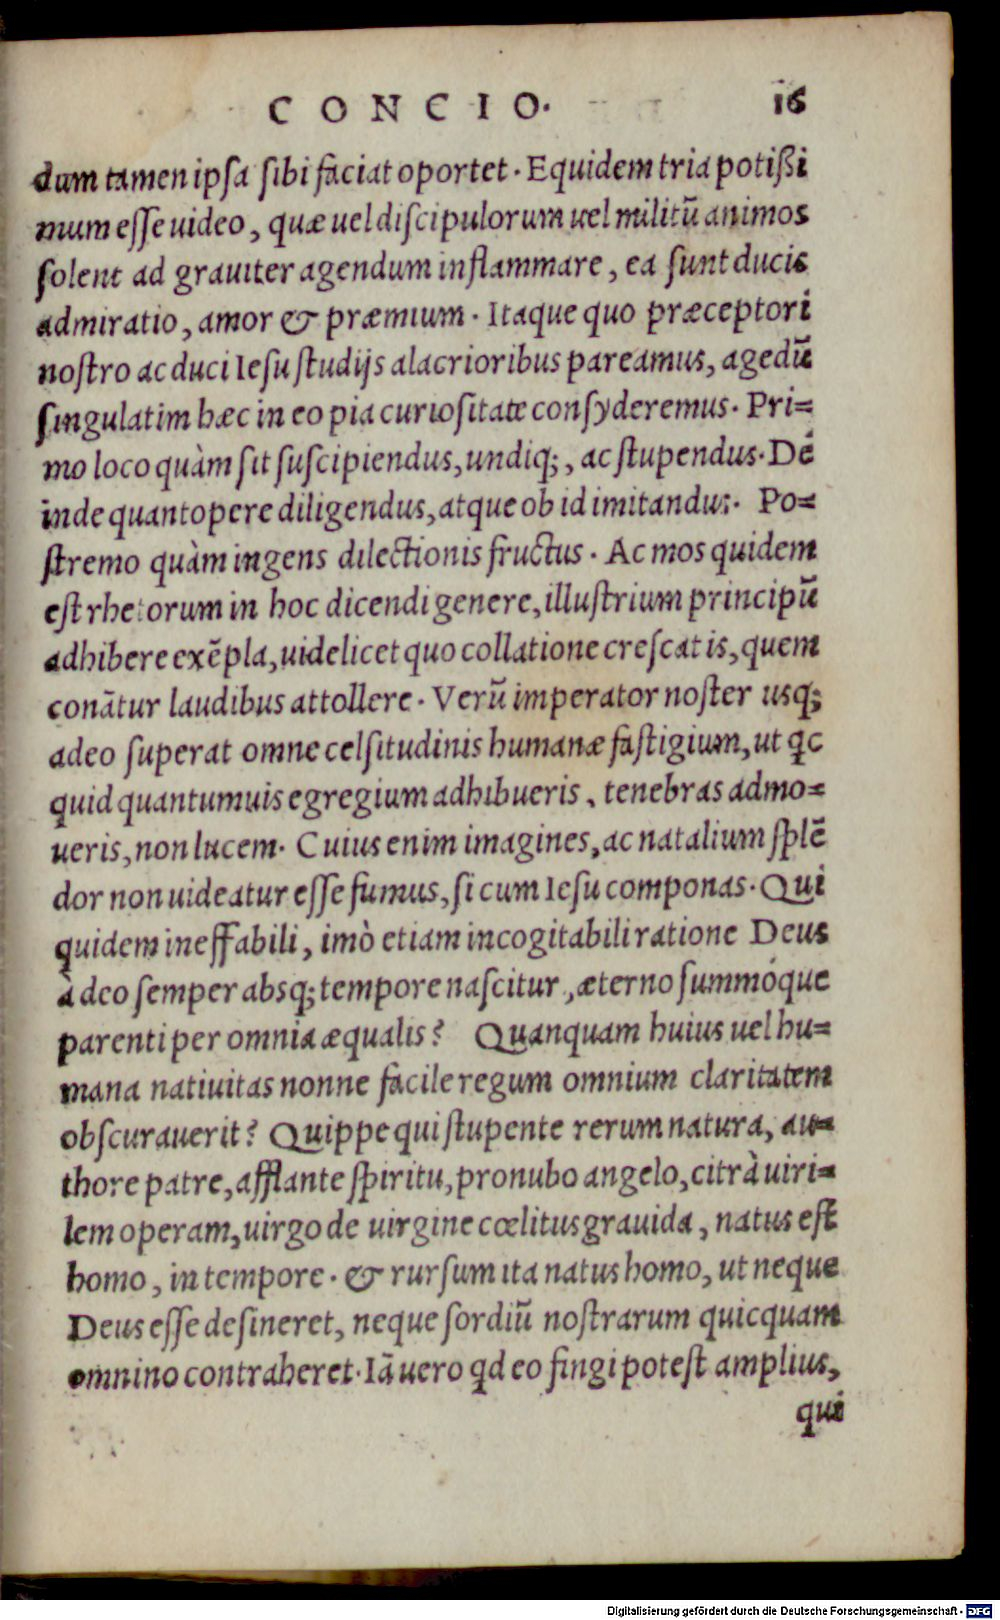 CONCIO. 16
dum tamen ipſa ſibi faciat oportet. Equidem tria potißi
mum eſſe uideo, quæ uel diſcipulorum uel militū animos
ſolent ad grauiter agendum inflammare, ea ſunt ducis
admiratio, amor & præmium. Itaque quo præceptori
noſtro ac duci Ieſu ſtudijs alacrioribus pareamus, agedū
ſingulatim hæc in eo pia curioſitate conſyderemus. Pri=
mo loco quàm ſit ſuſcipiendus, undiq;, ac ſtupendus. Dē
inde quantopere diligendus, atque ob id imitandus. Po=
ſtremo quàm ingens dilectionis fructus. Ac mos quidem
eſt rhetorum in hoc dicendi genere, illuſtrium principū
adhibere exēpla, uidelicet quo collatione creſcat is, quem
conātur laudibus attollere. Verū imperator noſter uſq;
adeo ſuperat omne celſitudinis humanæ faſtigium, ut qc
quid quantumuis egregium adhibueris, tenebras admo=
ueris, non lucem. Cuius enim imagines, ac natalium ſplē
dor non uideatur eſſe fumus, ſi cum Ieſu componas. Qui
quidem ineffabili, imò etiam incogitabili ratione Deus
à deo ſemper absq; tempore naſcitur, æterno ſummóque
parenti per omnia æqualis? Quanquam huius uel hu=
mana natiuitas nonne facile regum omnium claritatem
obſcurauerit? Quippe qui ſtupente rerum natura, au=
thore patre, afflante ſpiritu, pronubo angelo, citrà uiri=
lem operam, uirgo de uirgine cœlitus grauida, natus eſt
homo, in tempore. & rurſum ita natus homo, ut neque
Deus eſſe deſineret, neque ſordiū noſtrarum quicquam
omnino contraheret. Iā uero qd eo fingi poteſt amplius,
qui
Digitalisierung gefördert durch die Deutsche Forschungsgemeinschaft - DFG